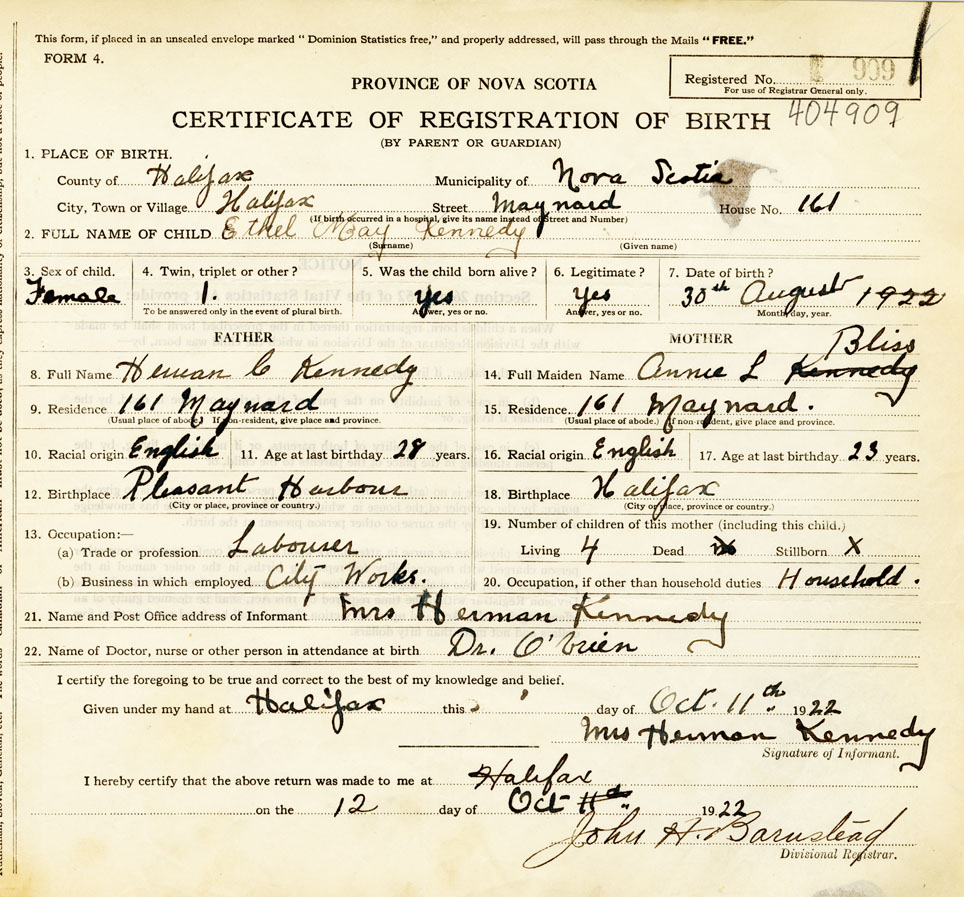 This form, if placed in an unsealed envelope marked " Dominion Statistics free," and properly addressed, will pass through the Mails "FREE."
FORM 4.
Registered No. 909
For use of Registrar General only.
PROVINCE OF NOVA SCOTIA
CERTIFICATE OF REGISTRATION OF BIRTH 404909
(BY PARENT OR GUARDIAN)
1. PLACE OF BIRTH.
County of Halifax Municipality of Nova Scotia
City, Town or Village Halifax Street Maynard House No. 161
(If birth occurred in a hospital, give its name instead of Street and Number)
2. FULL NAME OF CHILD Ethel May Kennedy
(Surname) (Given name)
3. Sex of child. 4. Twin, triplet or other? 5. Was the child born alive? 6. Legitimate? 7. Date of birth?
Female 1. yes Yes 30th August 1922
To be answered only in the event of plural birth. Answer, yes or no. Answer, yes or no. Month, day, year.
FATHER MOTHER
8. Full Name Herman C Kennedy 14. Full Maiden Name Annie L Kennedy Bliss
9. Residence 161 Maynard 15. Residence 161 Maynard.
(Usual place of above.) If non-resident, give place and province. (Usual place of above.) If non-resident, give place and province.
10. Racial origin English 11. Age at last birthday 28 years. 16. Racial origin English 17. Age at last birthday 23 years.
12. Birthplace Pleasant Harbour 18. Birthplace Halifax
(City or place, province or country.) (City or place, province or country.)
13. Occupation:— 19. Number of children of this mother (including this child.)
(a) Trade or profession Labourer Living 4 Dead Stillborn X
(b) Business in which employed City Works. 20. Occupation, if other than household duties Household.
21. Name and Post Office address of Informant Mrs Herman Kennedy
22. Name of Doctor, nurse or other person in attendance at birth Dr. O'Brien
I certify the foregoing to be true and correct to the best of my knowledge and belief.
Given under my hand at Halifax this day of Oct. 11th 1922
Mrs Herman Kennedy
Signature of Informant.
I hereby certify that the above return was made to me at Halifax
on the 12 day of Oct 11th 1922
John A. Barnstead
Divisional Registrar.